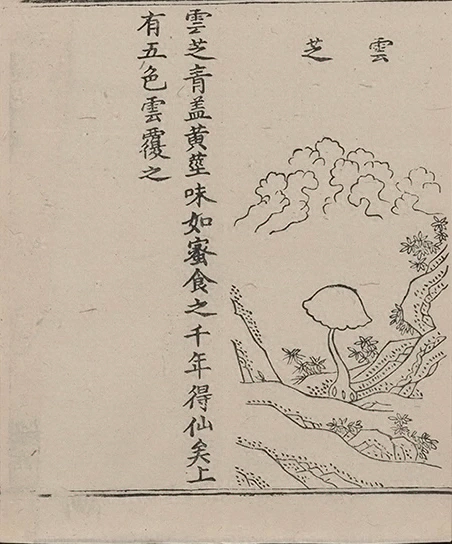 雲芝
雲芝青盖黄莖味如蜜食之千年得仙矣上
有五色雲覆之